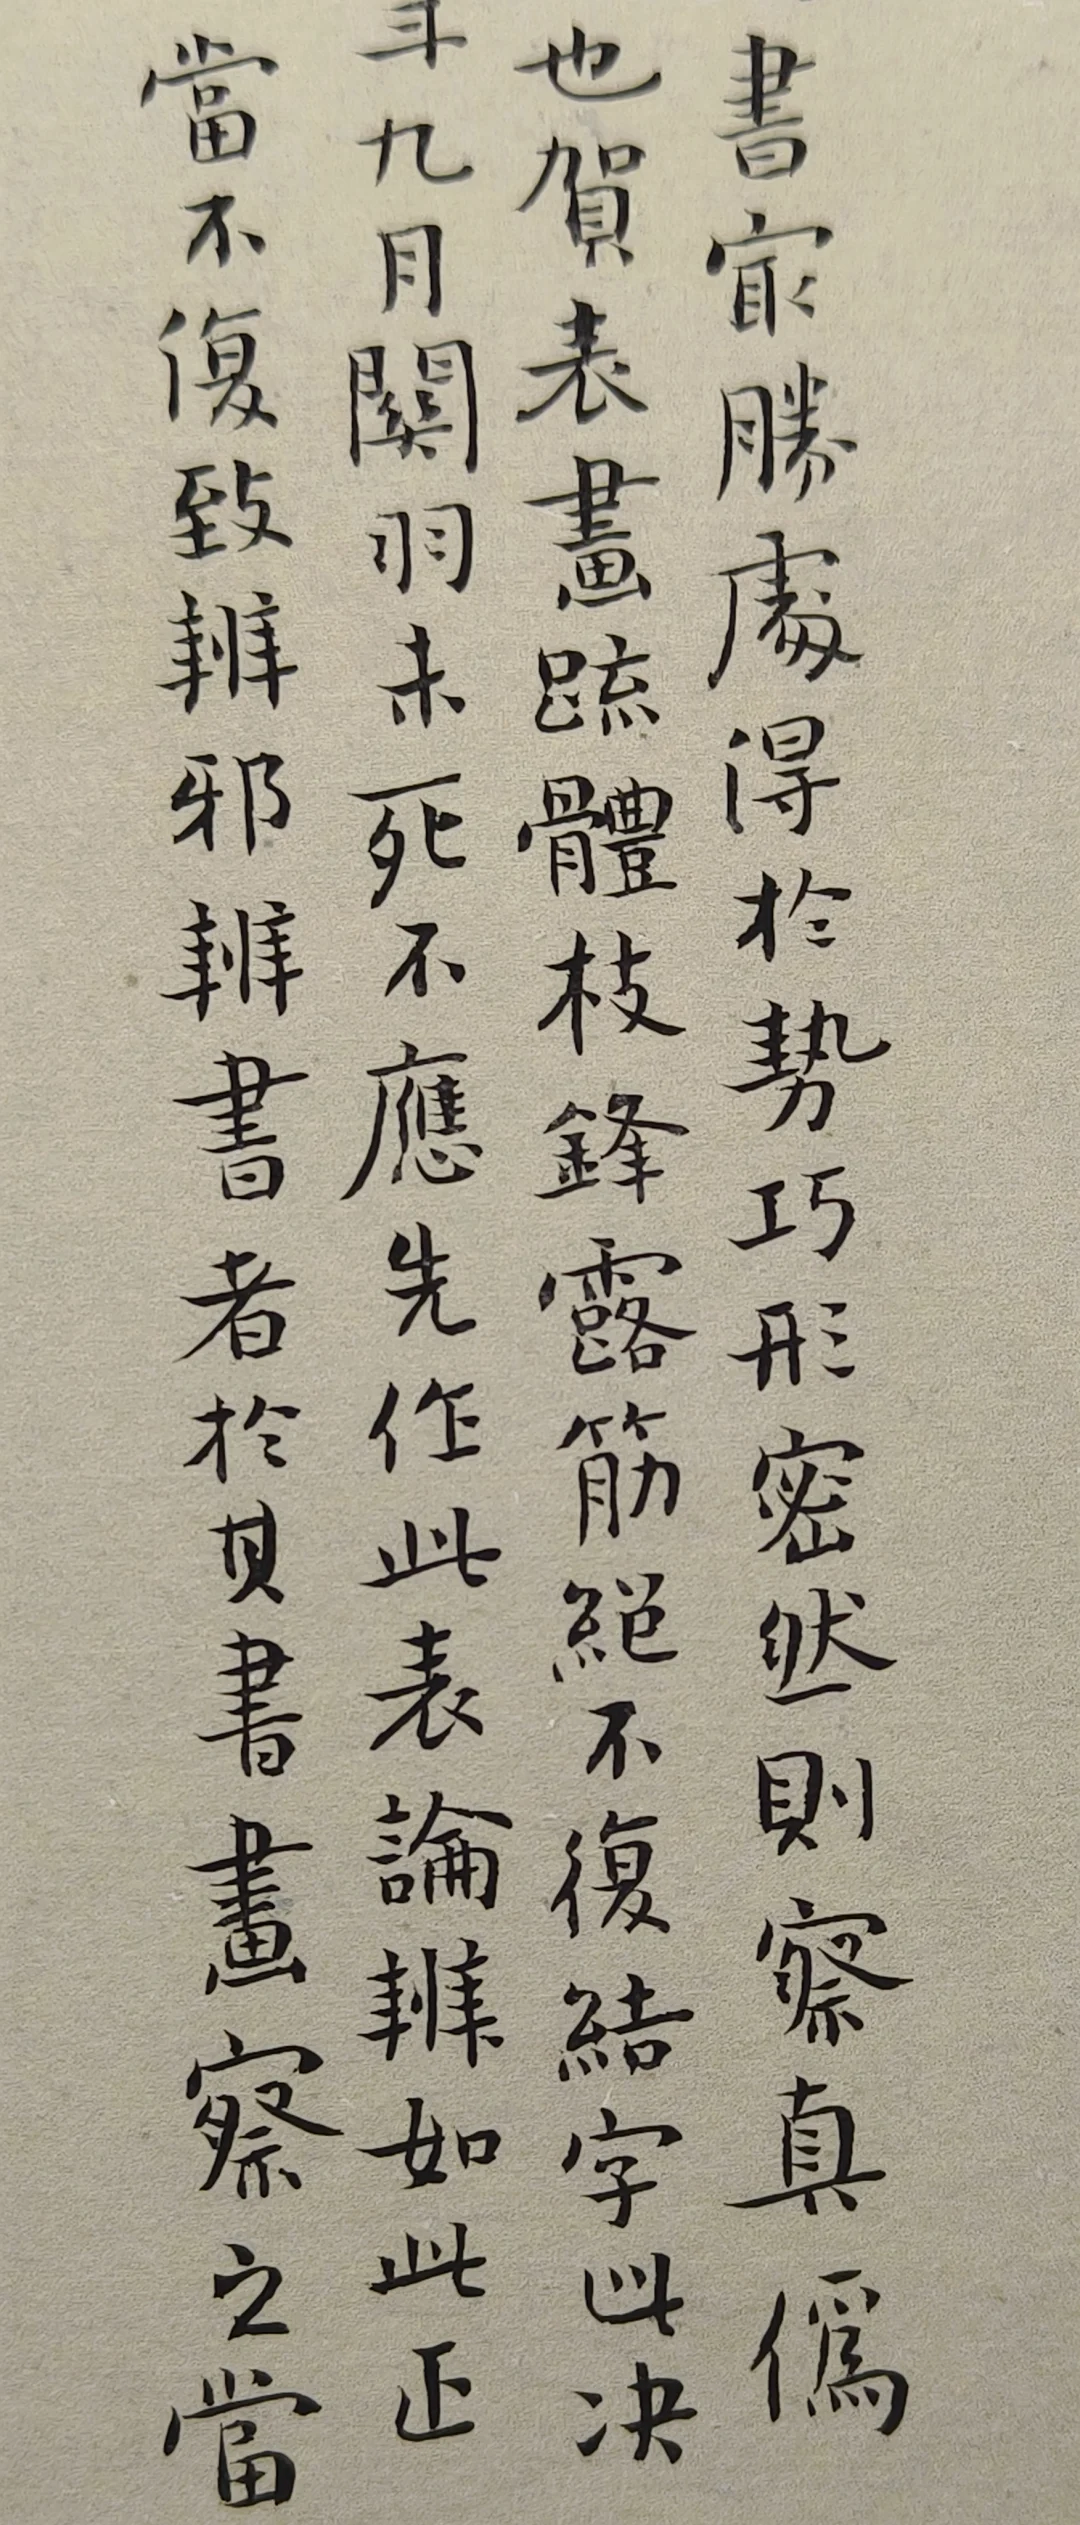 書冣勝處得於勢巧形密然則察真僞
也賀表畫疏體枝鋒露筋絕不復結字此決
年九月關羽未死不應先作此表論辨如此正
當不復致辨邪辨書者於其書畫察之當